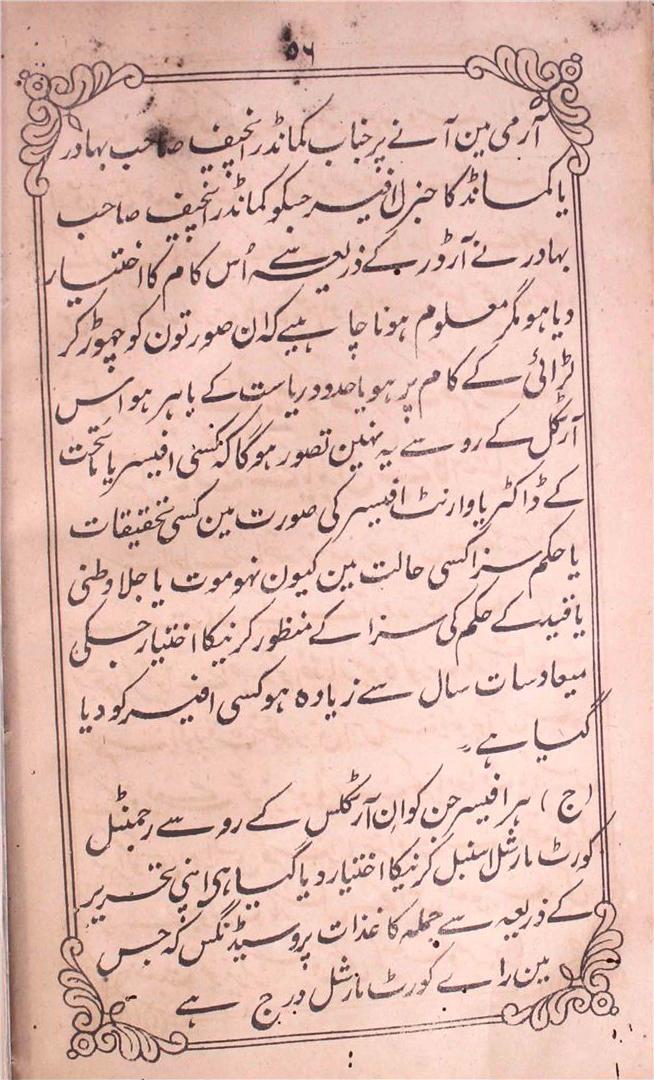 ۵۶
آرمی مین آنے پر جناب کمانڈر انچیف صاحب بہادر
یا کمانڈ کا جنرل افیسر جسکو کمانڈر انچیف صاحب
بہادر نے آرڈر کے ذریعہ سے اُس کام کا اختیار
دیا ہو مگر معلوم ہونا چاہیے کہ ان صورتون کو چھوڑ کر
لڑائی کے کام پر ہو یا حدود ریاست کے باہر ہو اس
آرٹکل کے رو سے یہ نہین تصور ہوگا کہ کسی افیسر یا ماتحت
کے ڈاکٹر یا وارنٹ افیسر کی صورت مین کسی تحقیقات
یا حکم سزا کسی حالت مین کیون نہو موت یا جلا وطنی
یا قید کے حکم کی سزا کے منظور کرنیکا اختیار جسکی
میعاد سات سال سے زیادہ ہو کسی افیسر کو دیا
گیا ہے۔
(ج) ہر افیسر جن کو ان آرٹکلس کے رو سے رجمنٹل
کورٹ مارشل اسنبل کرنیکا اختیار دیا گیا ہی اپنی تحریر
کے ذریعہ سے جملہ کاغذات پروسیڈنگس کہ جس
مین راے کورٹ مارشل درج ہے